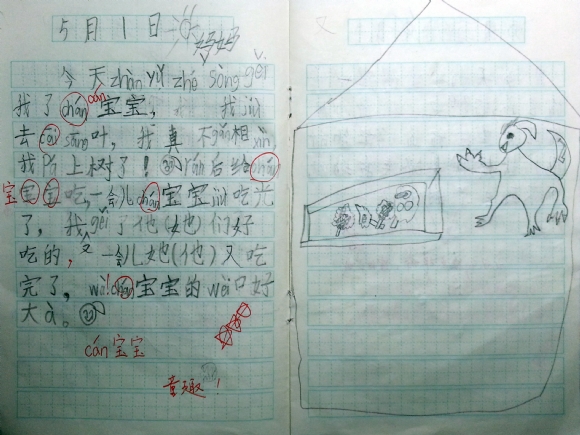 5月1日
妈妈
今天zhàn yì zhé sòng gěi
我了chán cán宝宝, 我jiù
去cǎi sāng叶, 我真不gǎn相xìn
我pá上树了! rán后给chán
宝宝宝吃,一会儿chán宝宝jiù吃光
了,我gěi了他(她)们好
吃的,又一会儿她(他)又吃
完了, wa! chán宝宝的wèi口好
大à。
cán宝宝
童趣!